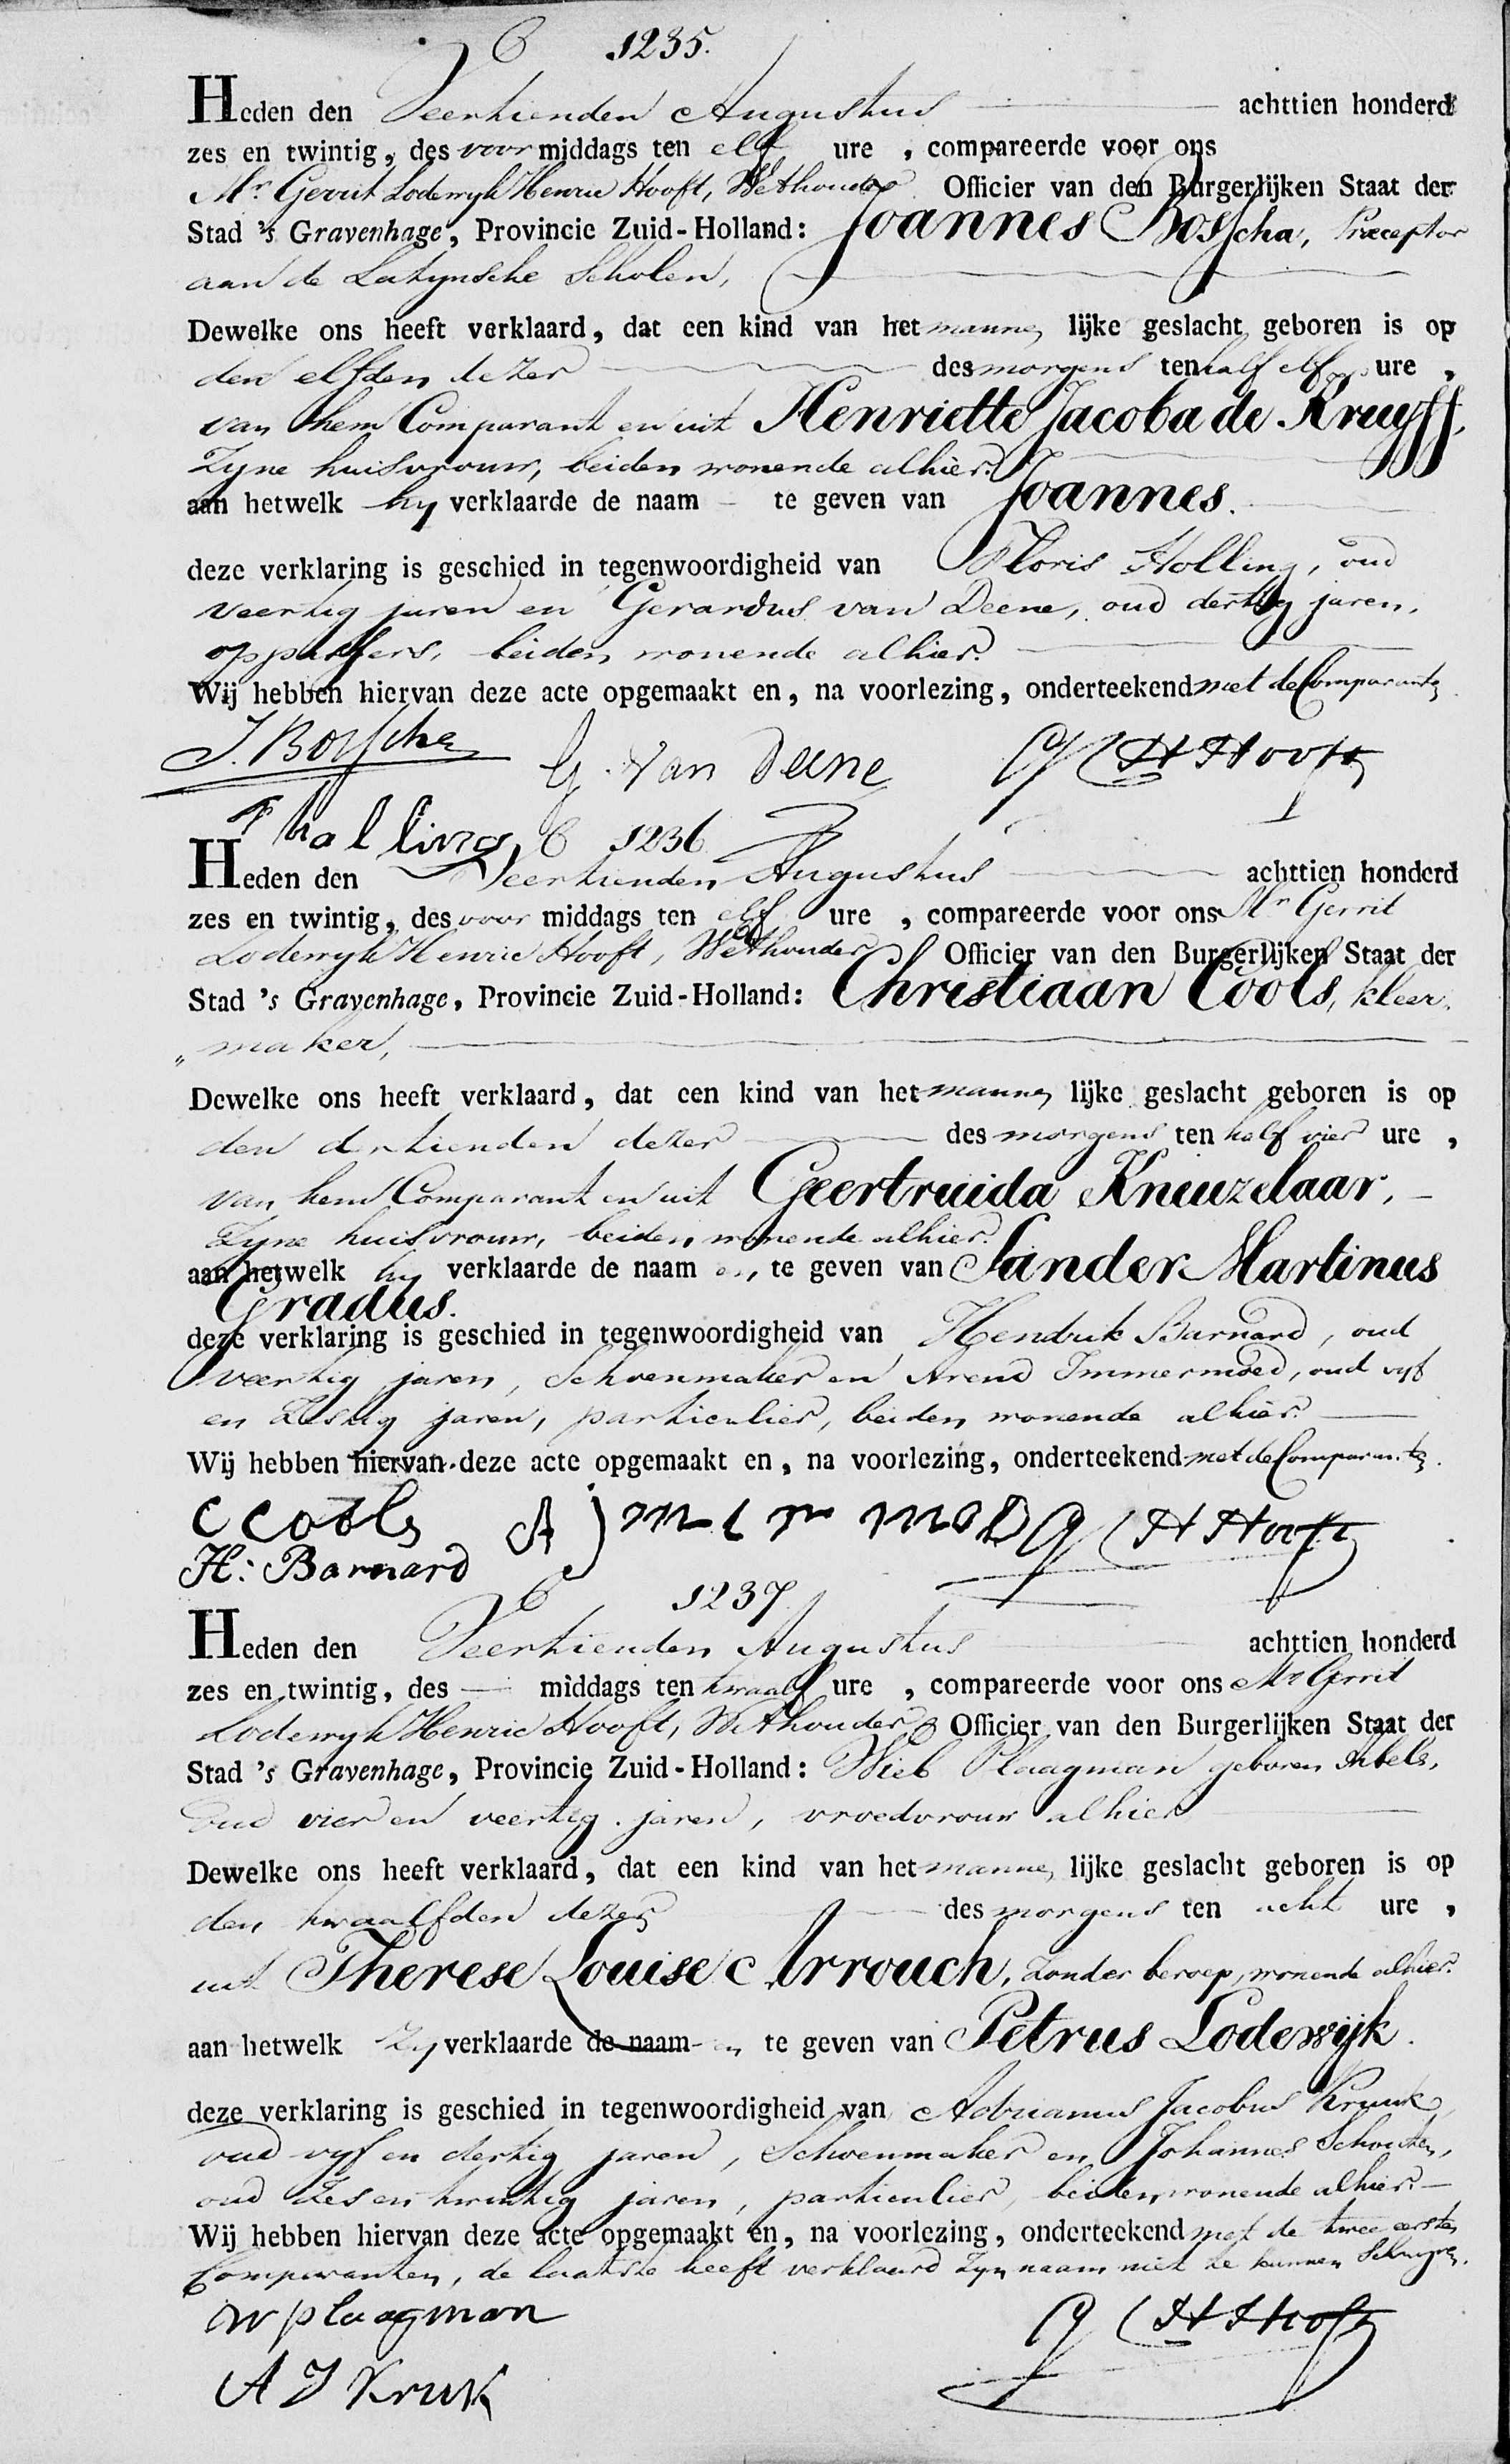 1235.
Heden den Veertienden Augustus achttien honderd
zes en twintig, des voor middags ten elf ure , compareerde voor ons
Mr. Gerrit Lodewyk Henric Hooft, Wethouder Officier van den Burgerlijken Staat der
Stad 's Gravenhage, Provincie Zuid-Holland: Joannes Bosscha, Praeceptor
aan de Latynsche Scholen,
Dewelke ons heeft verklaard, dat een kind van het manne lijke geslacht geboren is op
den elfden dezer des morgens ten half elf ure ,
van hem Comparant en uit Henriette Jacoba de Kruyff,
Zyne huisvrouw, beiden wonende alhier.
aan hetwelk hy verklaarde de naam - te geven van Joannes.
deze verklaring is geschied in tegenwoordigheid van Floris Holling, oud
veertig jaren en Gerardus van Deene, oud dertig jaren,
oppassers, beiden wonende alhier.
Wij hebben hiervan deze acte opgemaakt en, na voorlezing, onderteekend met de Comparanten
J. Bosscha G. van Deene G L H Hooft
F halling
1236
Heden den Veertienden Augustus achttien honderd
zes en twintig, des voor middags ten elf ure , compareerde voor ons Mr. Gerrit
Lodewyk Henric Hooft, Wethouder Officier van den Burgerlijken Staat der
Stad 's Gravenhage, Provincie Zuid-Holland: Christiaan Cools, kleer-
„ maker,
Dewelke ons heeft verklaard, dat een kind van het manne lijke geslacht geboren is op
den dertienden dezer des morgens ten half vier ure ,
van hem Comparant en uit Geertruida Kneuzelaar,
Zyne huisvrouw, beiden wonende alhier.
aan hetwelk hy verklaarde de naam en, te geven van Sander Martinus
Gradus.
deze verklaring is geschied in tegenwoordigheid van Hendrik Barnard, oud
veertig jaren, Schoenmaker en Arend Immermoed, oud vyf
en Zestig jaren, particulier, beiden wonende alhier.
Wij hebben hiervan deze acte opgemaakt en, na voorlezing, onderteekend met de Comparanten.
C Cools G L H Hooft
H: Barnard
1237.
Heden den Veertienden Augustus achttien honderd
zes en twintig, des — middags ten twaalf ure , compareerde voor ons Mr Gerrit
Lodewyk Henric Hooft, Wethouder Officier van den Burgerlijken Staat der
Stad 's Gravenhage, Provincie Zuid-Holland: Wieb Plaagman geboren Abels,
oud vier en veertig jaren, vroedvrouw alhier
Dewelke ons heeft verklaard, dat een kind van het manne lijke geslacht geboren is op
den twaalfden dezer des morgens ten acht ure ,
uit Therese Louise Arrouch, zonder beroep, wonende alhier.
aan hetwelk Zy verklaarde de naam en te geven van Petrus Lodewijk.
deze verklaring is geschied in tegenwoordigheid van Adrianus Jacobus Kruuk,
oud vyf en dertig jaren, Schoenmaker en Johannes Schouten,
oud Zes en twintig jaren, particulier, beiden wonende alhier.
Wij hebben hiervan deze acte opgemaakt en, na voorlezing, onderteekend met de twee eerste
Comparanten, de laatste heeft verklaard Zyn naam niet te kunnen Schryven.
W plaagman G L H Hooft
A J Kruk